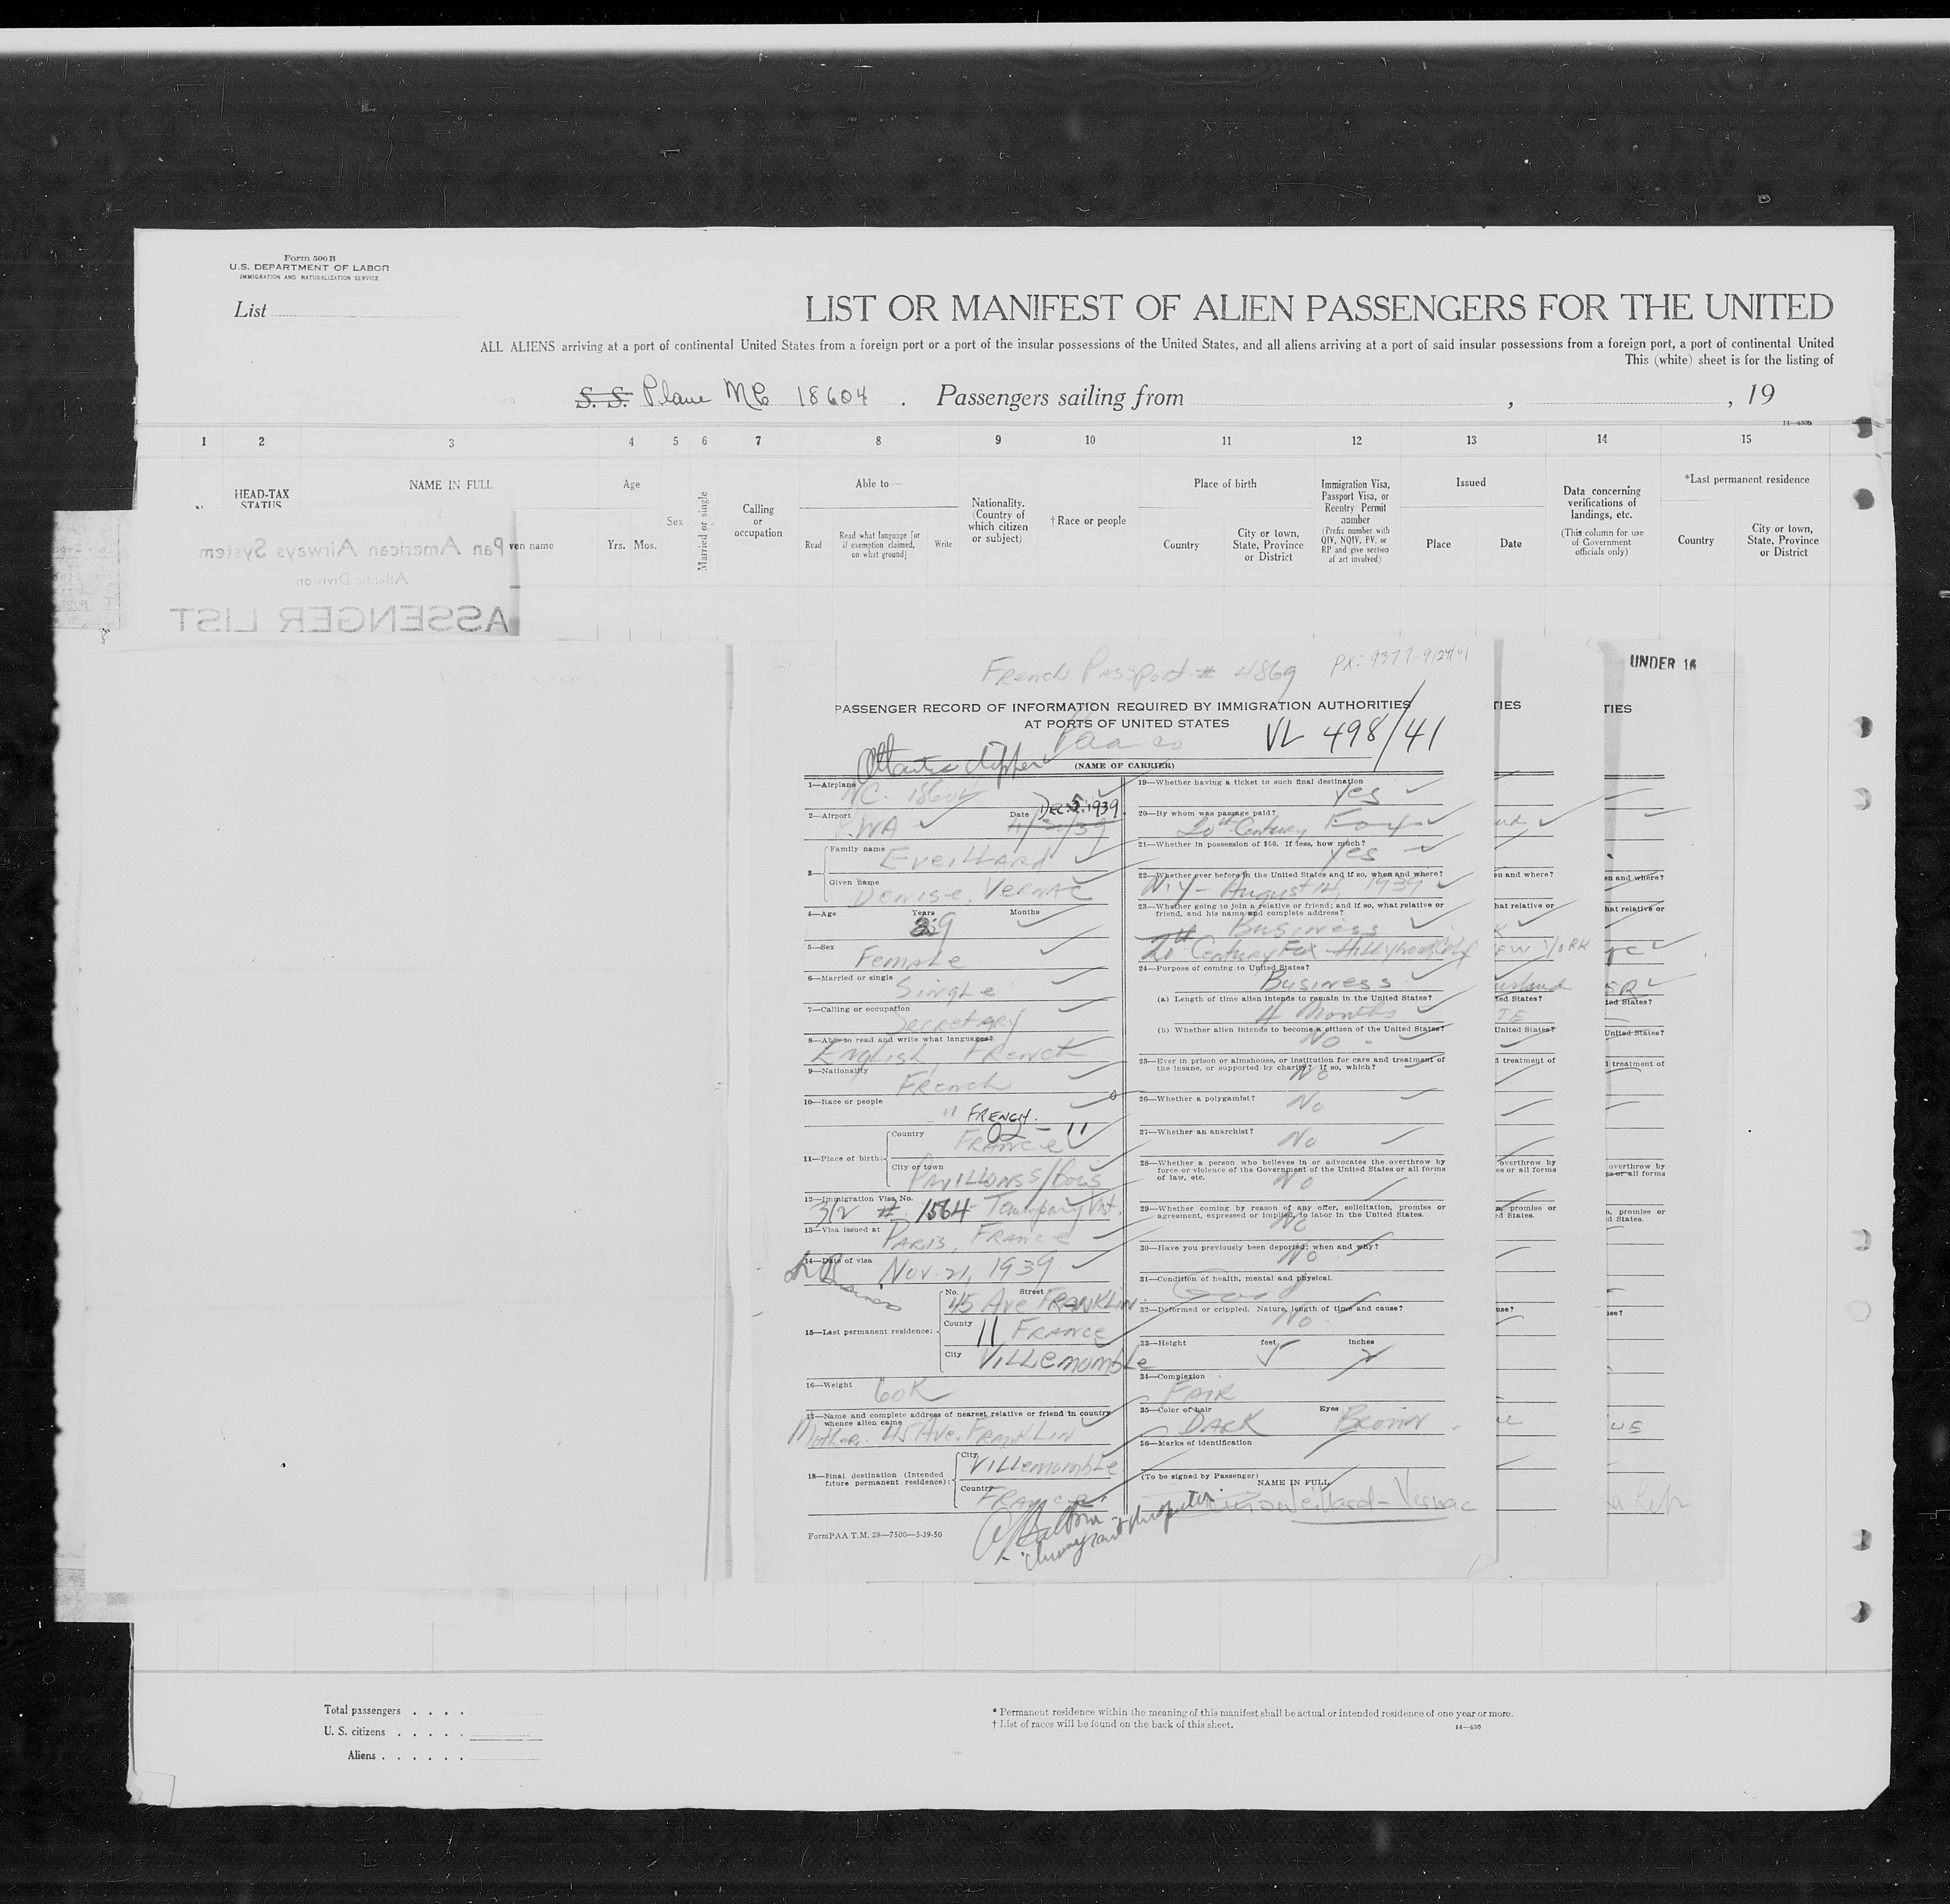 Form 500 B
U.S. DEPARTMENT OF LABOR
IMMIGRATION AND NATURALIZATION SERVICE
List
LIST OR MANIFEST OF ALIEN PASSENGERS FOR THE UNITED
ALL ALIENS arriving at a port of continental United States from a foreign port or a port of the insular possessions of the United States, and all aliens arriving at a port of said insular possessions from a foreign port, a port of continental United
This (white) sheet is for the listing of
S. S. Plane NC 18604 . Passengers sailing from , , 19
1 2 3 4 5 6 7 8 9 10 11 12 13 14 15
HEAD-TAX STATUS
NAME IN FULL
ven name
Age
Yrs. Mos.
Sex
Married or single
Calling or occupation
Able to—
Read
Read what language [or if exemption claimed, on what ground]
Write
Nationality. (Country of which citizen or subject)
†Race or people
Place of birth
Country
City or town, State, Province or District
Immigration Visa, Passport Visa, or Reentry Permit number
(Prefix number with QIV, NQIV, PV, or RP and give section of act involved)
Issued
Place
Date
Data concerning verifications of landings, etc.
(This column for use of Government officials only)
*Last permanent residence
Country
City or town, State, Province or District
Pan American Airways System
Atlantic Division
ASSENGER LIST
UNDER 16
French Passport # 4869
PX: 9377-9/24/41
PASSENGER RECORD OF INFORMATION REQUIRED BY IMMIGRATION AUTHORITIES
AT PORTS OF UNITED STATES
VL 498/41
Atlantic Clipper
(NAME OF CARRIER)
1—Airplane NC-18604
2—Airport Date Dec. 2, 1939
11/30/39
3— Family name Eveillard
Given name Denise, Vernac
4—Age Years Months
5—Sex Female
6—Married or single Single
7—Calling or occupation Secretary
8—Able to read and write what languages? English, French
9—Nationality French
10—Race or people " FRENCH.
11—Place of birth: Country France
City or town Pavillons s/Bois
12—Immigration Visa No. 3/2 # 1564 Temporary Vist.
13—Visa issued at Paris, France
14—Date of visa Nov. 21, 1939
15—Last permanent residence: No. Street 45 Ave Franklin
County 11 France
City Villemomble
16—Weight 60K
17—Name and complete address of nearest relative or friend in country whence alien came
Mother. 45 Ave. Franklin
18—Final destination (Intended future permanent residence): City Villemomble
Country France
FormPAA T.M. 28—7500—5-39-50
19—Whether having a ticket to such final destination Yes
20—By whom was passage paid? 20th Century Fox
21—Whether in possession of $50. If less, how much? Yes
22—Whether ever before in the United States and if so, when and where?
N.Y - August 14, 1939
23—Whether going to join a relative or friend; and if so, what relative or friend, and his name and complete address?
Business
20th Century Fox - Hollywood, Calif
24—Purpose of coming to United States? Business
(a) Length of time alien intends to remain in the United States? 4 months
(b) Whether alien intends to become a citizen of the United States? No
25—Ever in prison or almshouse, or institution for care and treatment of the insane, or supported by charity? If so, which? No
26—Whether a polygamist? No
27—Whether an anarchist? No
28—Whether a person who believes in or advocates the overthrow by force or violence of the Government of the United States or all forms of law, etc. No
29—Whether coming by reason of any offer, solicitation, promise or agreement, expressed or implied, to labor in the United States. No
30—Have you previously been deported; when and why? No
31—Condition of health, mental and physical. Good
32—Deformed or crippled. Nature, length of time and cause? No
33—Height feet 5 inches 2
34—Complexion Fair
35—Color of hair Dark Eyes Brown
36—Marks of identification
(To be signed by Passenger)
NAME IN FULL
Eveillard-Vernac
Immigrant Inspector
Total passengers . . . .
U. S. citizens . . . . .
Aliens . . . . . .
* Permanent residence within the meaning of this manifest shall be actual or intended residence of one year or more.
† List of races will be found on the back of this sheet.
14—430